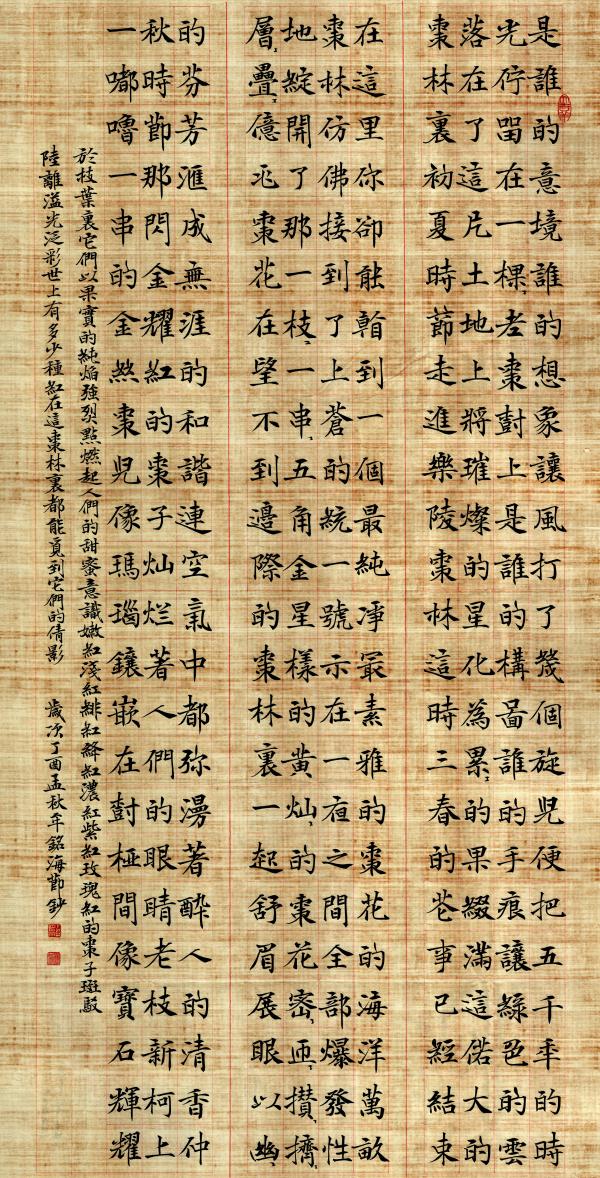 是誰的意境誰的想象讓風打了幾個旋兒便把五千年的時
光停留在一棵〻老棗樹上是誰的構圖誰的手痕讓綠色的雲
落在了這片土地上將璀燦的星化為累〻的果綴滿這偌大的
棗林裏初夏時節走進樂陵棗林這時三春的花事已經結束
在這里你卻能翰到一個最純淨最素雅的棗花的海洋萬畝
棗林仿佛接到了上蒼的統一號示在一夜之間全部爆發性
地綻開了那一枝〻一串〻五角金星樣的黄灿〻的棗花密〻匝〻攢〻擠〻
層〻疊〻億兆棗花在望不到邊際的棗林裏一起舒眉展眼以幽〻
的芬芳滙成無涯的和諧連空氣中都弥漫著醉人的清香仲
秋時節那閃金耀紅的棗子灿烂著人們的眼睛老枝新柯上
一嘟嚕一串的金絲棗兒像瑪瑙鑲嵌在樹椏間像寶石輝耀
於枝葉裏它們以果實的純焰強烈點燃起人們的甜蜜意識嫩紅淺紅緋紅絳紅濃紅紫紅玫瑰紅的棗子斑駁
陸離溢光泛彩世上有多少種紅在這棗林裏都能覓到它們的倩影 歲次丁酉孟秋年銘海節鈔